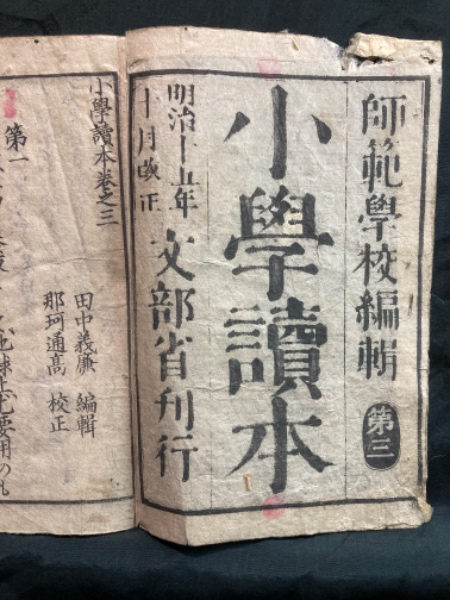 師範學校編輯 第三
小學讀本
明治十五年
十月改正
文部省刊行
小學讀本卷之三
田中義廉 編輯
那珂通高 校正
第一